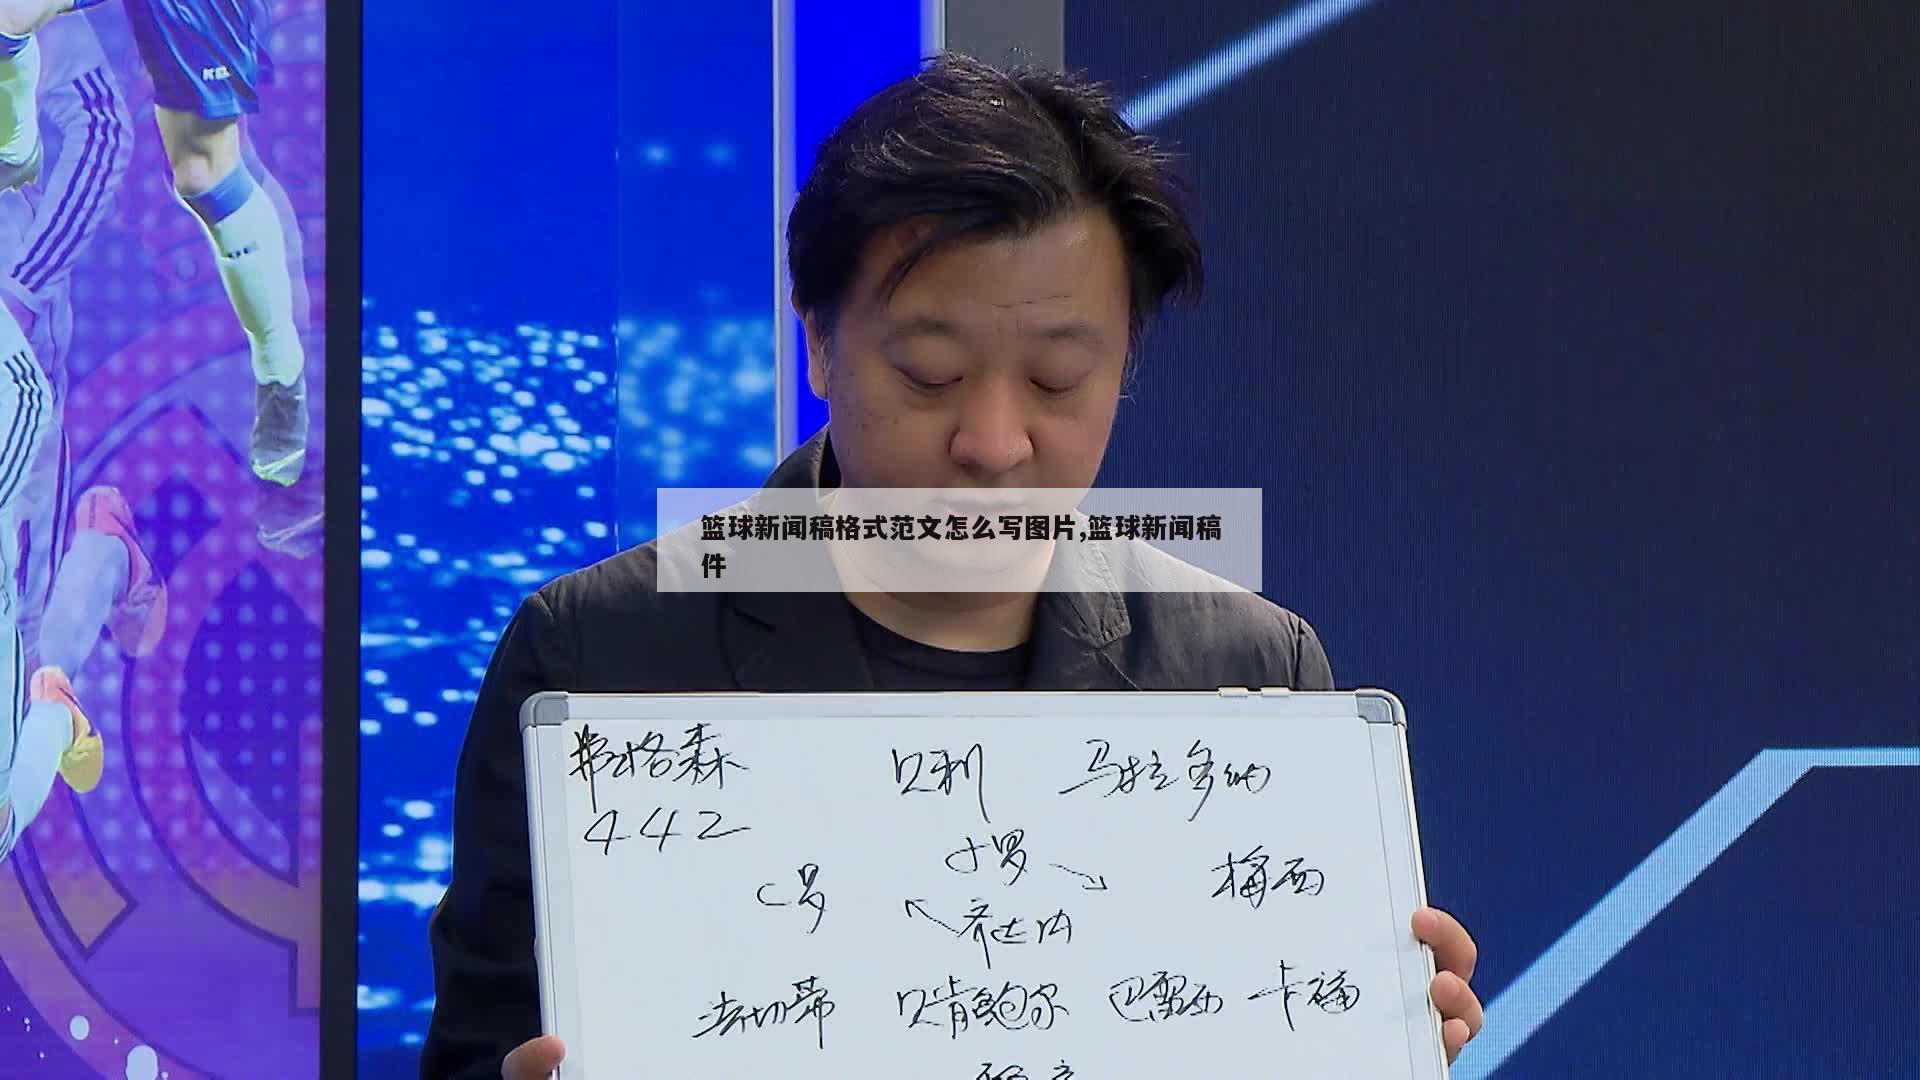 篮球新闻稿格式范文怎么写图片,篮球新闻稿
件
弗格森 贝利 马拉多纳
442
小罗
C罗 梅西
齐达内
法切蒂 贝肯鲍尔 巴雷西 卡福